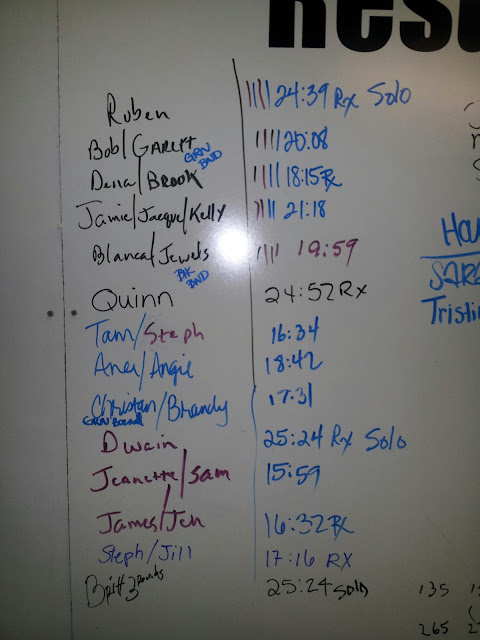 Ruben |||| 24:39 Rx Solo
Bob/GARETT |||| 20:08
GRN BND
Dena/BROOK |||| 18:15 Rx
Jamie/Jacque/Kelly |||| 21:18
Blanca/Jewels |||| 19:59
BK BND
Quinn 24:52 Rx
Tam/Steph 16:34
Aner/Angie 18:42
Christan/Brandy 17:31
GRN Band
Dwain 25:24 Rx Solo
Jeanette/Sam 15:59
James/Jen 16:32 Rx
Steph/Jill 17:16 RX
Britt 3 Rounds 25:24 Solo
Tristi
135
265